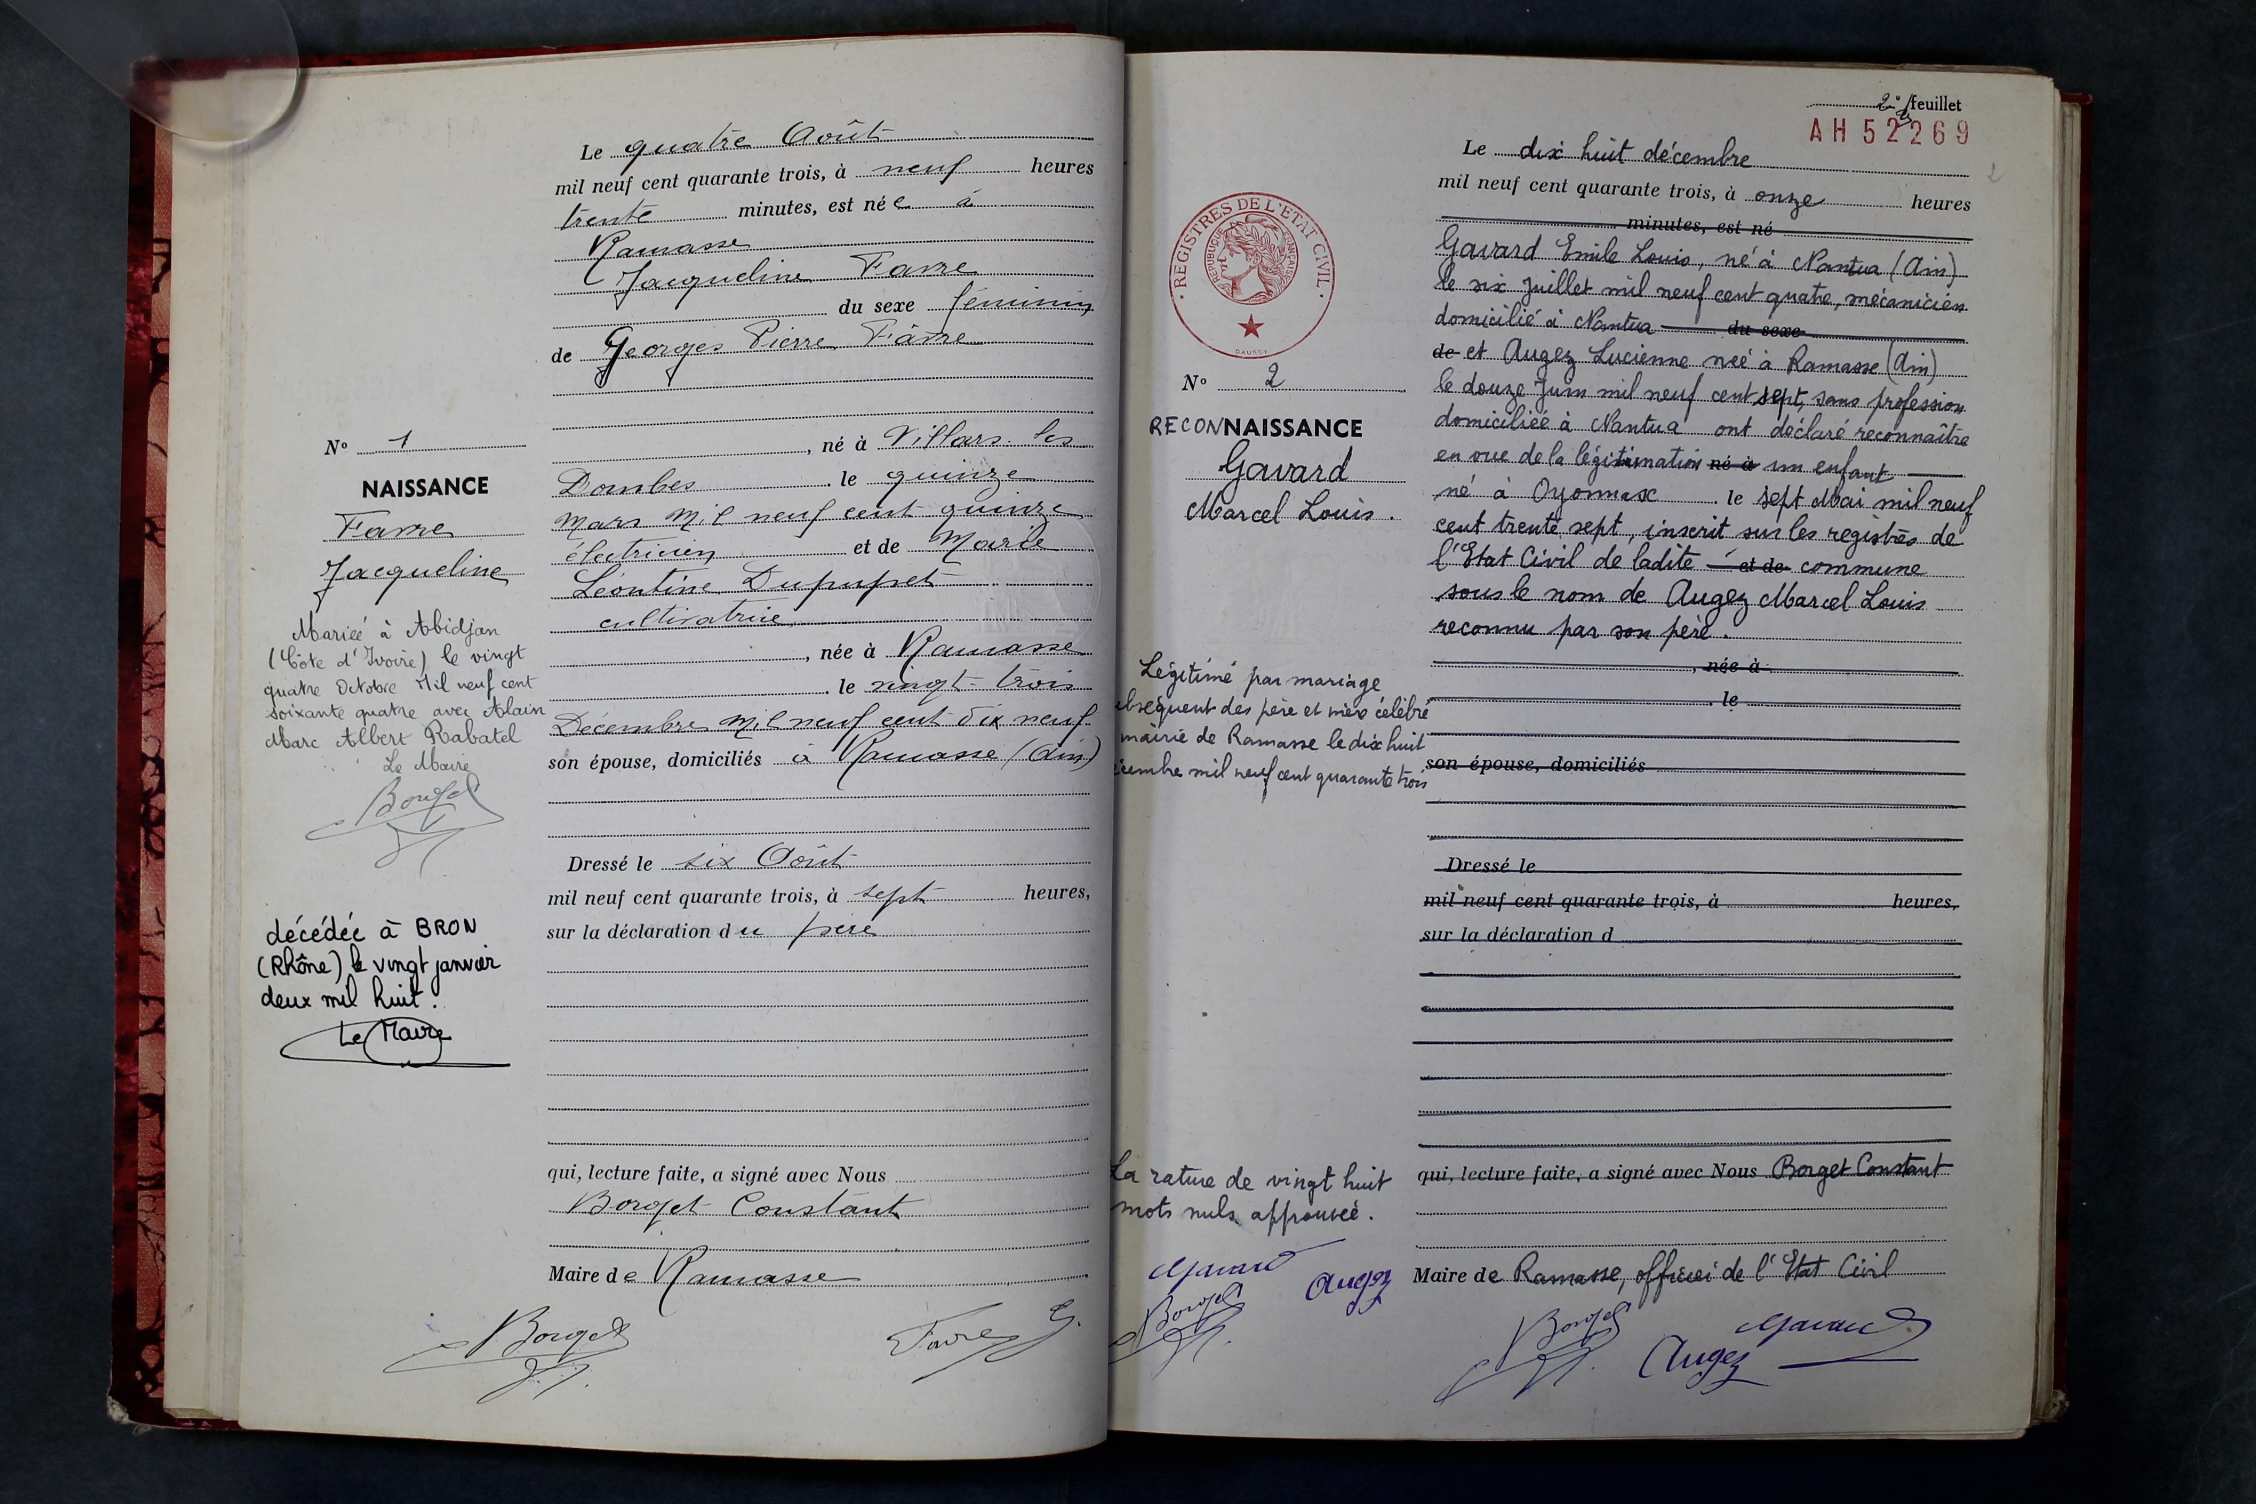 Le quatre Août
mil neuf cent quarante trois, à neuf heures
trente minutes, est née à
Ramasse
Jacqueline Favre
du sexe féminin
de Georges Pierre Favre
N° 1
, né à Villars les
Dombes le quinze
NAISSANCE
Mars mil neuf cent quinze
Favre
électricien et de Marie
Jacqueline
Léontine Dupupet
cultivatrice
, née à Ramasse
le vingt-trois
Décembre mil neuf cent dix neuf
son épouse, domiciliés à Ramasse (Ain)
Mariée à Abidjan
(Côte d'Ivoire) le vingt
quatre Octobre Mil neuf cent
soixante quatre avec Alain
Marc Albert Rabatel
Le Maire
Borget
Dressé le six Août
mil neuf cent quarante trois, à sept heures,
sur la déclaration du père
décédée à BRON
(Rhône) le vingt janvier
deux mil huit.
Le Maire
qui, lecture faite, a signé avec Nous
Borget Constant
Maire de Ramasse
Borget
Favre G.
2e feuillet
AH 52269
2
Le dix huit décembre
mil neuf cent quarante trois, à onze heures
minutes, est né
REGISTRES DE L'ETAT CIVIL
REPUBLIQUE FRANÇAISE
DAUSSY
Gavard Emile Louis, né à Nantua (Ain)
le six Juillet mil neuf cent quatre, mécanicien
domicilié à Nantua du sexe
de et Augez Lucienne née à Ramasse (Ain)
N° 2
le douze Juin mil neuf cent sept, sans profession
RECONNAISSANCE
domiciliée à Nantua ont déclaré reconnaître
Gavard
en vue de la légitimation né à un enfant
Marcel Louis.
né à Oyonnax le sept Mai mil neuf
cent trente sept, inscrit sur les registres de
l'Etat Civil de ladite et de commune
sous le nom de Augez Marcel Louis
reconnu par son père.
, née à
le
son épouse, domiciliés
Légitimé par mariage
ubséquent des père et mère célébré
mairie de Ramasse le dix huit
écembre mil neuf cent quarante trois
Dressé le
mil neuf cent quarante trois, à heures,
sur la déclaration d
La rature de vingt huit
mots nuls approuvée.
qui, lecture faite, a signé avec Nous Borget Constant
Maire de Ramasse, officier de l'Etat Civil
Gavard
Borget
Augez
Borget
Gavard
Augez